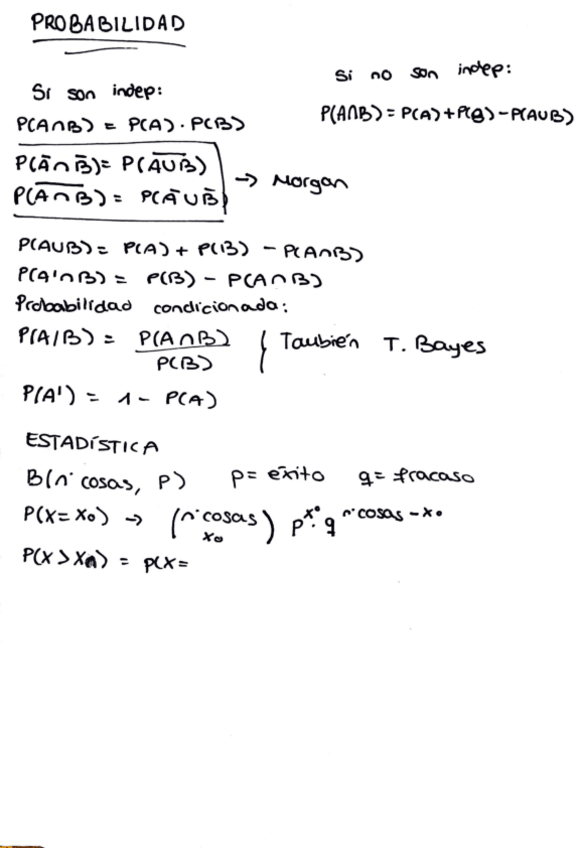 PROBABILIDAD
Si son indep:
P(A∩B) = P(A) · P(B)
Si no son indep:
P(A∩B) = P(A) + P(B) - P(A∪B)
P(A̅∩B̅) = P(A̅∪̅B̅)
P(A̅∩̅B̅) = P(A̅∪B̅) → Morgan
P(A∪B) = P(A) + P(B) - P(A∩B)
P(A'∩B) = P(B) - P(A∩B)
Probabilidad condicionada:
P(A/B) = P(A∩B) / P(B) { También T. Bayes
P(A') = 1 - P(A)
ESTADÍSTICA
B(nº cosas, p) p = éxito q = fracaso
P(X = x₀) → (nº cosas x₀) p^x₀ · q^nº cosas - x₀
P(X > x₀) = P(X =